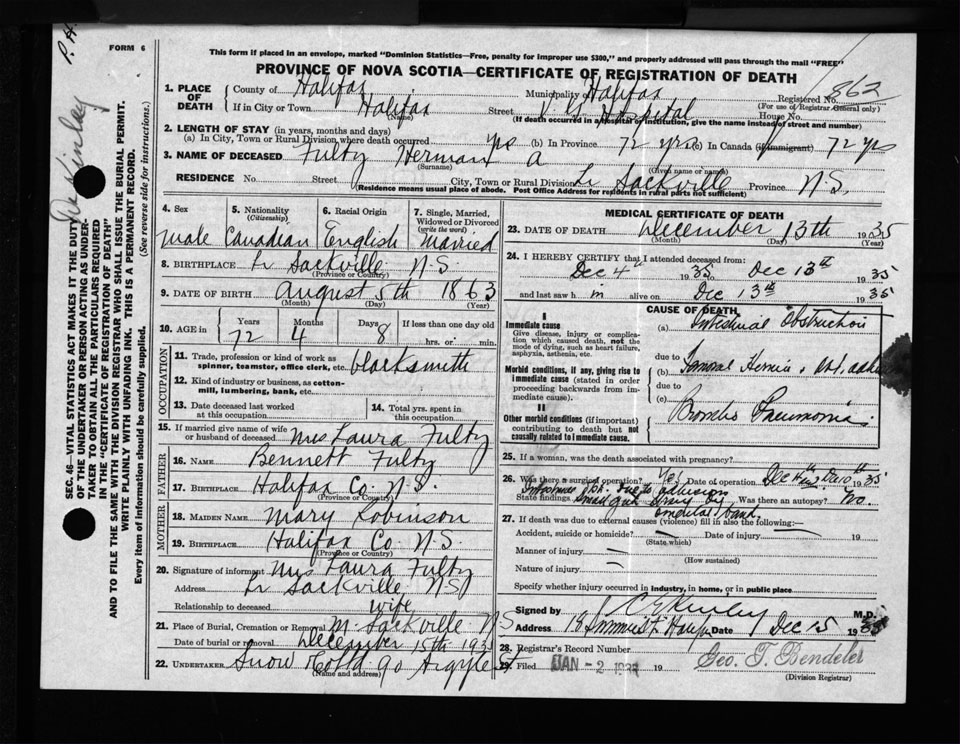 P. H.
FORM 6
This form if placed in an envelope, marked "Dominion Statistics—Free, penalty for improper use $300," and properly addressed will pass through the mail "FREE"
PROVINCE OF NOVA SCOTIA—CERTIFICATE OF REGISTRATION OF DEATH
1. PLACE OF DEATH County of Halifax Municipality of Halifax Registered No. 862
(For use of Registrar General only)
If in City or Town Halifax Street V. G. Hospital House No.
(Name) (If death occurred in a hospital or institution, give the name instead of street and number)
2. LENGTH OF STAY (in years, months and days)
(a) In City, Town or Rural Division where death occurred yrs (b) In Province 72 yrs (c) In Canada (if immigrant) 72 yrs
3. NAME OF DECEASED Fultz Herman A
(Surname) (Given name or names)
RESIDENCE No. Street City, Town or Rural Division Lr Sackville Province N.S.
(Residence means usual place of abode. Post Office Address for residents in rural parts not sufficient)
4. Sex 5. Nationality (Citizenship) 6. Racial Origin 7. Single, Married, Widowed or Divorced (write the word)
Male Canadian English Married
8. BIRTHPLACE Lr Sackville N.S.
(Province or Country)
9. DATE OF BIRTH August 5th 1863
(Month) (Day) (Year)
10. AGE in Years Months Days If less than one day old
72 4 8 hrs. or min.
OCCUPATION
11. Trade, profession or kind of work as spinner, teamster, office clerk, etc. blacksmith
12. Kind of industry or business, as cotton-mill, lumbering, bank, etc.
13. Date deceased last worked at this occupation 14. Total yrs. spent in this occupation
15. If married give name of wife or husband of deceased Mrs Laura Fultz
FATHER
16. NAME Bennett Fultz
17. BIRTHPLACE Halifax Co. N.S.
(Province or Country)
MOTHER
18. MAIDEN NAME Mary Robinson
19. BIRTHPLACE Halifax Co N.S
(Province or Country)
20. Signature of informant Mrs Laura Fultz
Address Lr Sackville N.S
Relationship to deceased wife
21. Place of Burial, Cremation or Removal M. Sackville N S
Date of burial or removal December 15th 1935
22. UNDERTAKER Snow & Co Ltd 90 Argyle St
(Name and address)
MEDICAL CERTIFICATE OF DEATH
23. DATE OF DEATH December 13th 1935
(Month) (Day) (Year)
24. I HEREBY CERTIFY that I attended deceased from:
Dec 4th 1935 to Dec 13th 1935
and last saw him alive on Dec 13th 1935
CAUSE OF DEATH
I
Immediate cause
Give disease, injury or complication which caused death, not the mode of dying, such as heart failure, asphyxia, asthenia, etc.
(a) Intestinal Obstruction
due to
Morbid conditions, if any, giving rise to immediate cause (stated in order proceeding backwards from immediate cause).
(b) Femoral Hernia
due to
(c)
II
Other morbid conditions (if important) contributing to death but not causally related to immediate cause.
Broncho Pneumonia
25. If a woman, was the death associated with pregnancy?
26. Was there a surgical operation? Yes Date of operation Dec 4th Dec 10th 1935
State findings Intestinal obst. due to adhesions Was there an autopsy? No.
omental band.
27. If death was due to external causes (violence) fill in also the following:—
Accident, suicide or homicide? Date of injury 19
(State which)
Manner of injury
(How sustained)
Nature of injury
Specify whether injury occurred in industry, in home, or in public place
Signed by M.D.
Address Halifax Date Dec 15 1935
28. Registrar's Record Number
29. Filed JAN - 2 19 Geo. T. Bendeler
(Division Registrar)
SEC. 46—VITAL STATISTICS ACT MAKES IT THE DUTY OF THE UNDERTAKER OR PERSON ACTING AS UNDERTAKER TO OBTAIN ALL THE PARTICULARS REQUIRED IN THE "CERTIFICATE OF REGISTRATION OF DEATH" AND TO FILE THE SAME WITH THE DIVISION REGISTRAR WHO SHALL ISSUE THE BURIAL PERMIT.
WRITE PLAINLY WITH UNFADING INK. THIS IS A PERMANENT RECORD.
Every item of information should be carefully supplied. (See reverse side for instructions.)